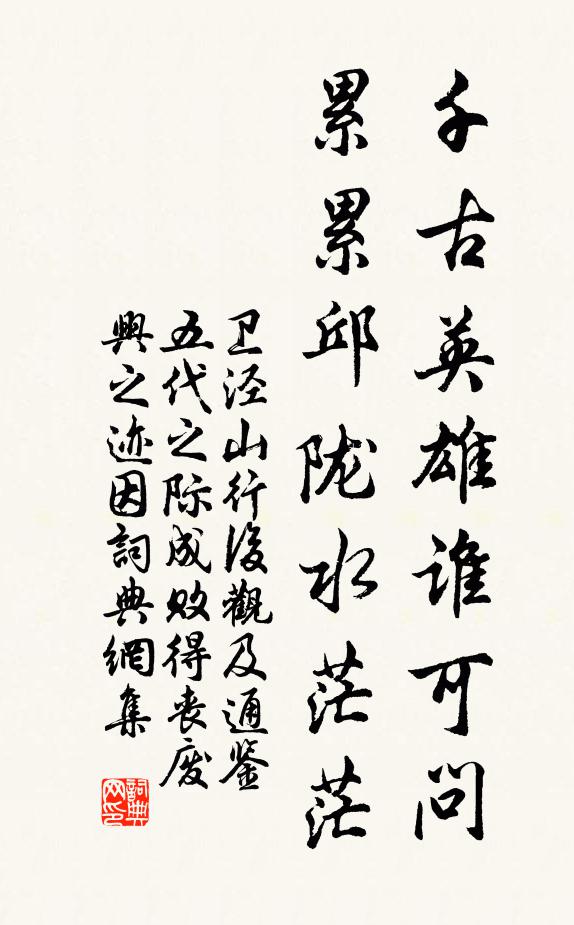 千古英雄谁可问
累累邱陇水茫茫
卫泾山行后觀及通鉴
五代之际成败得丧废
興之迹因詞典網集
詞典网印